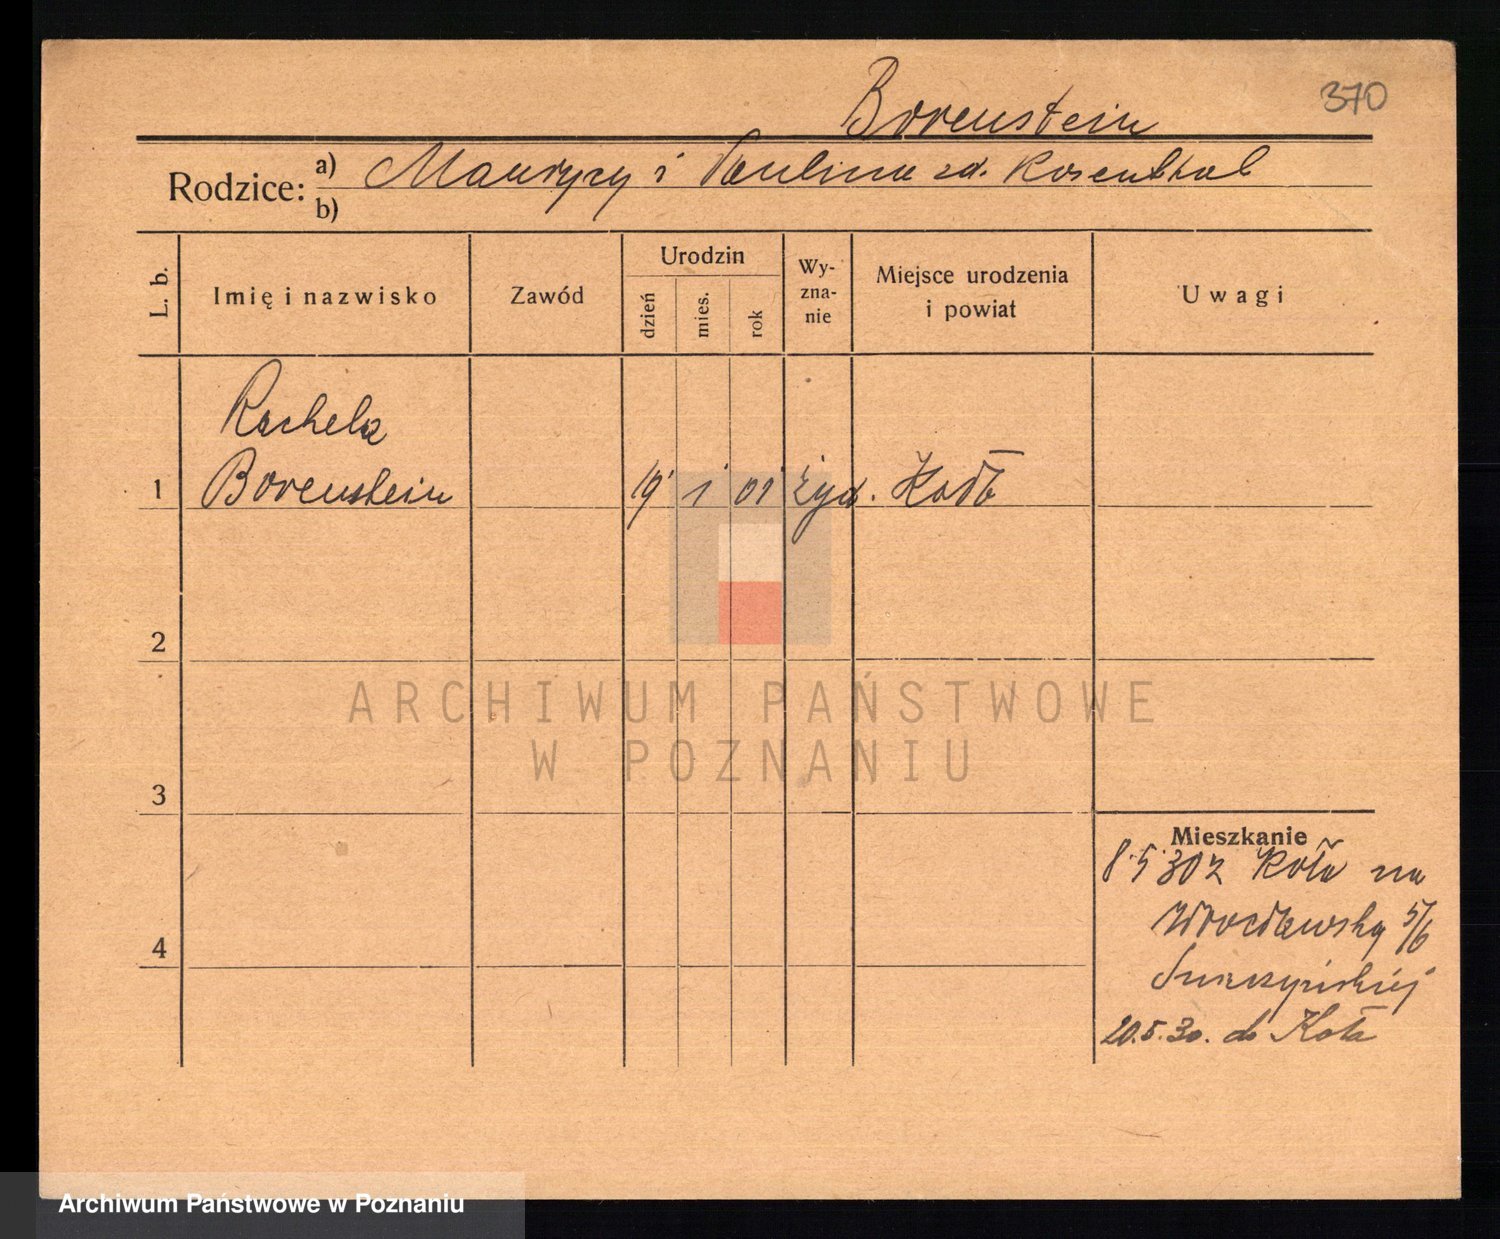 370
Borenstein
Rodzice: a) Maurycy i Paulina zd. Rosenthal
b)
L. b.
Imię i nazwisko
Zawód
Urodzin
dzień
mies.
rok
Wy-
zna-
nie
Miejsce urodzenia
i powiat
Uwagi
Rachela
1 Borenstein 19 1 01 żyd. Koło
2
3
4
Mieszkanie
8.5.30 z Koła na
Wrocławską 5/6
20.5.30. do Koła
ARCHIWUM PAŃSTWOWE
W POZNANIU
Archiwum Państwowe w Poznaniu